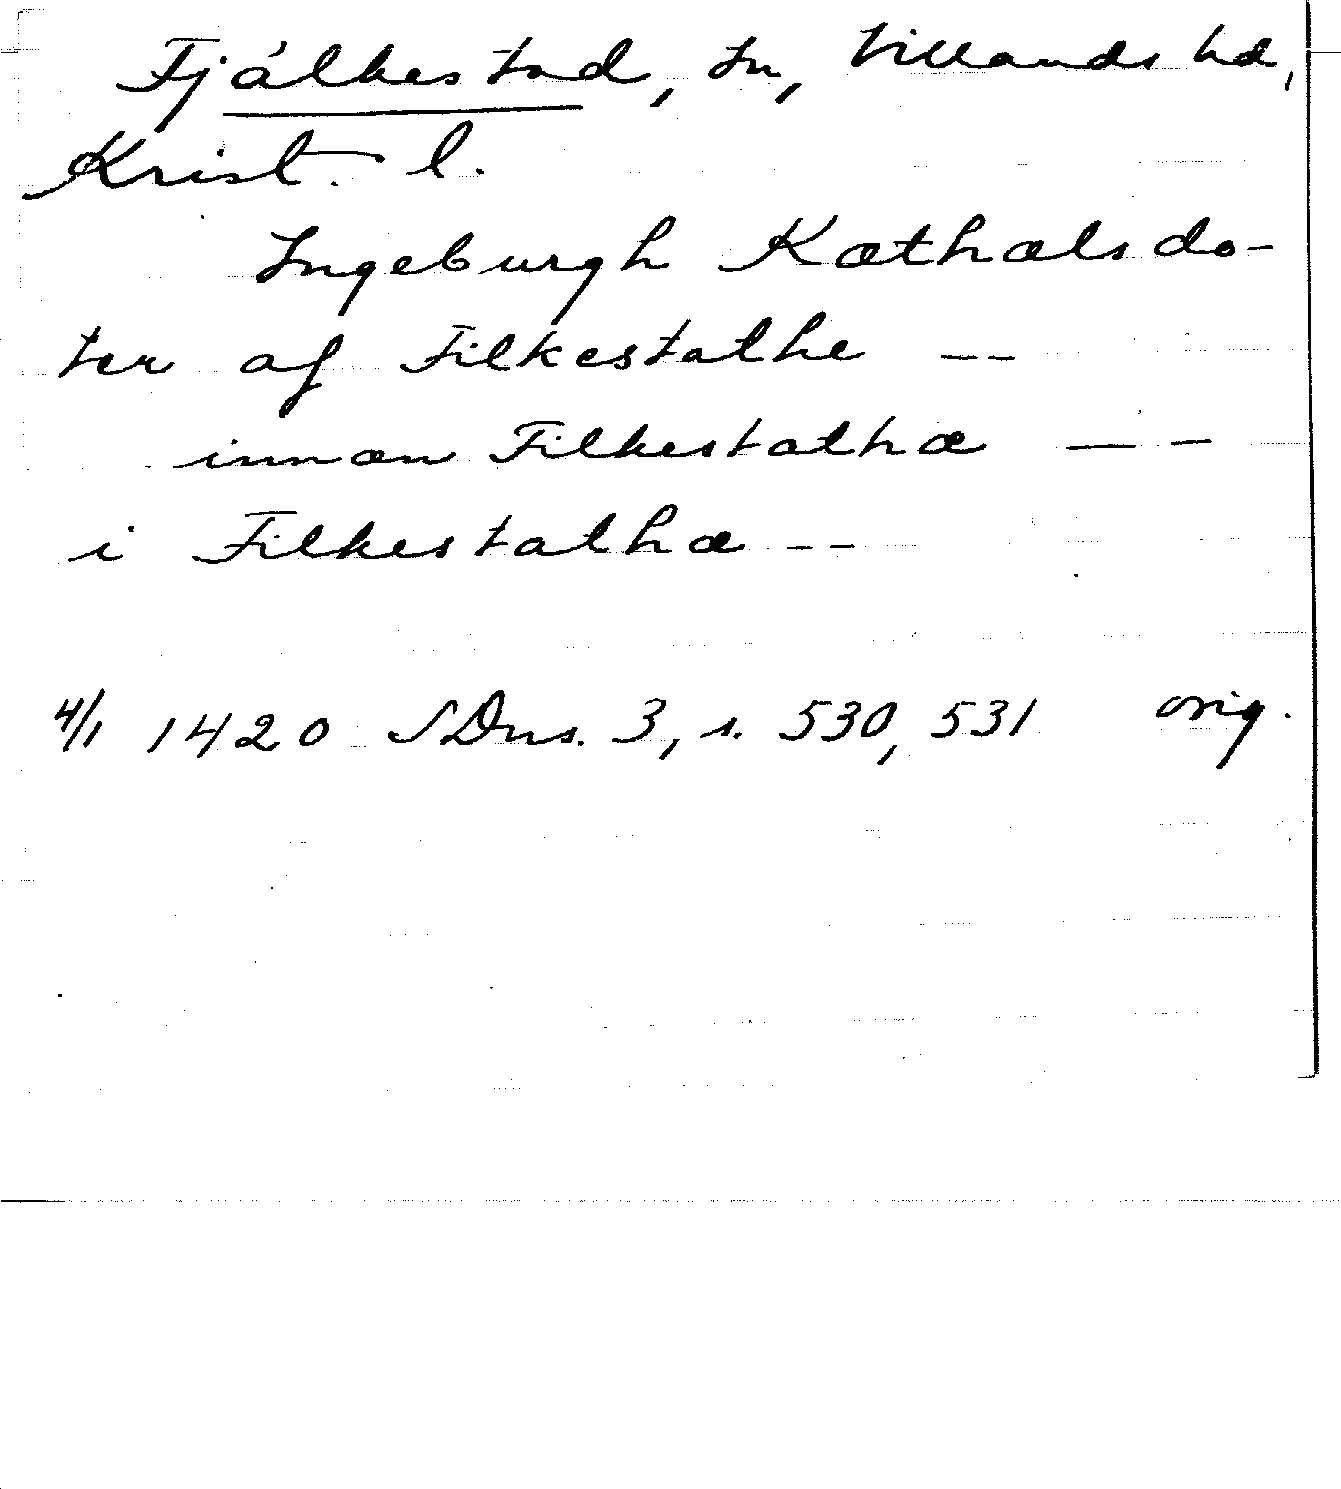 Fjälkestad, sn, Villands hd,
Krist. l.
Ingeburgh Kæthælsdo-
ter af Filkestathe --
innan Filkestathæ --
i Filkestathæ --
4/1 1420 SDns. 3, s. 530, 531 orig.